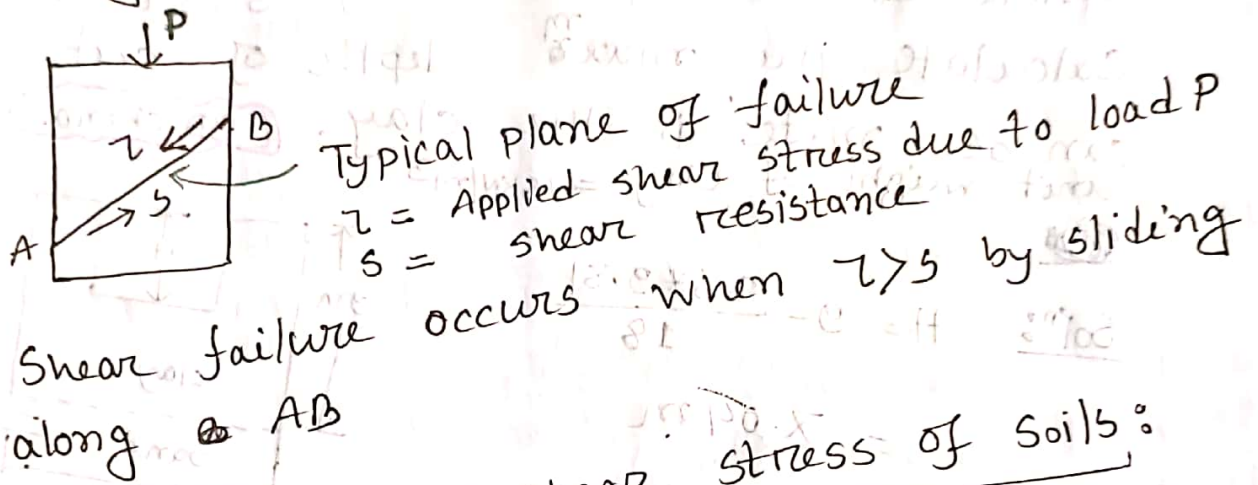 P
τ
B
S.
A
Typical plane of failure
τ = Applied shear stress due to load P
S = shear resistance
Shear failure occurs when τ>S by sliding
along AB
stress of Soils: